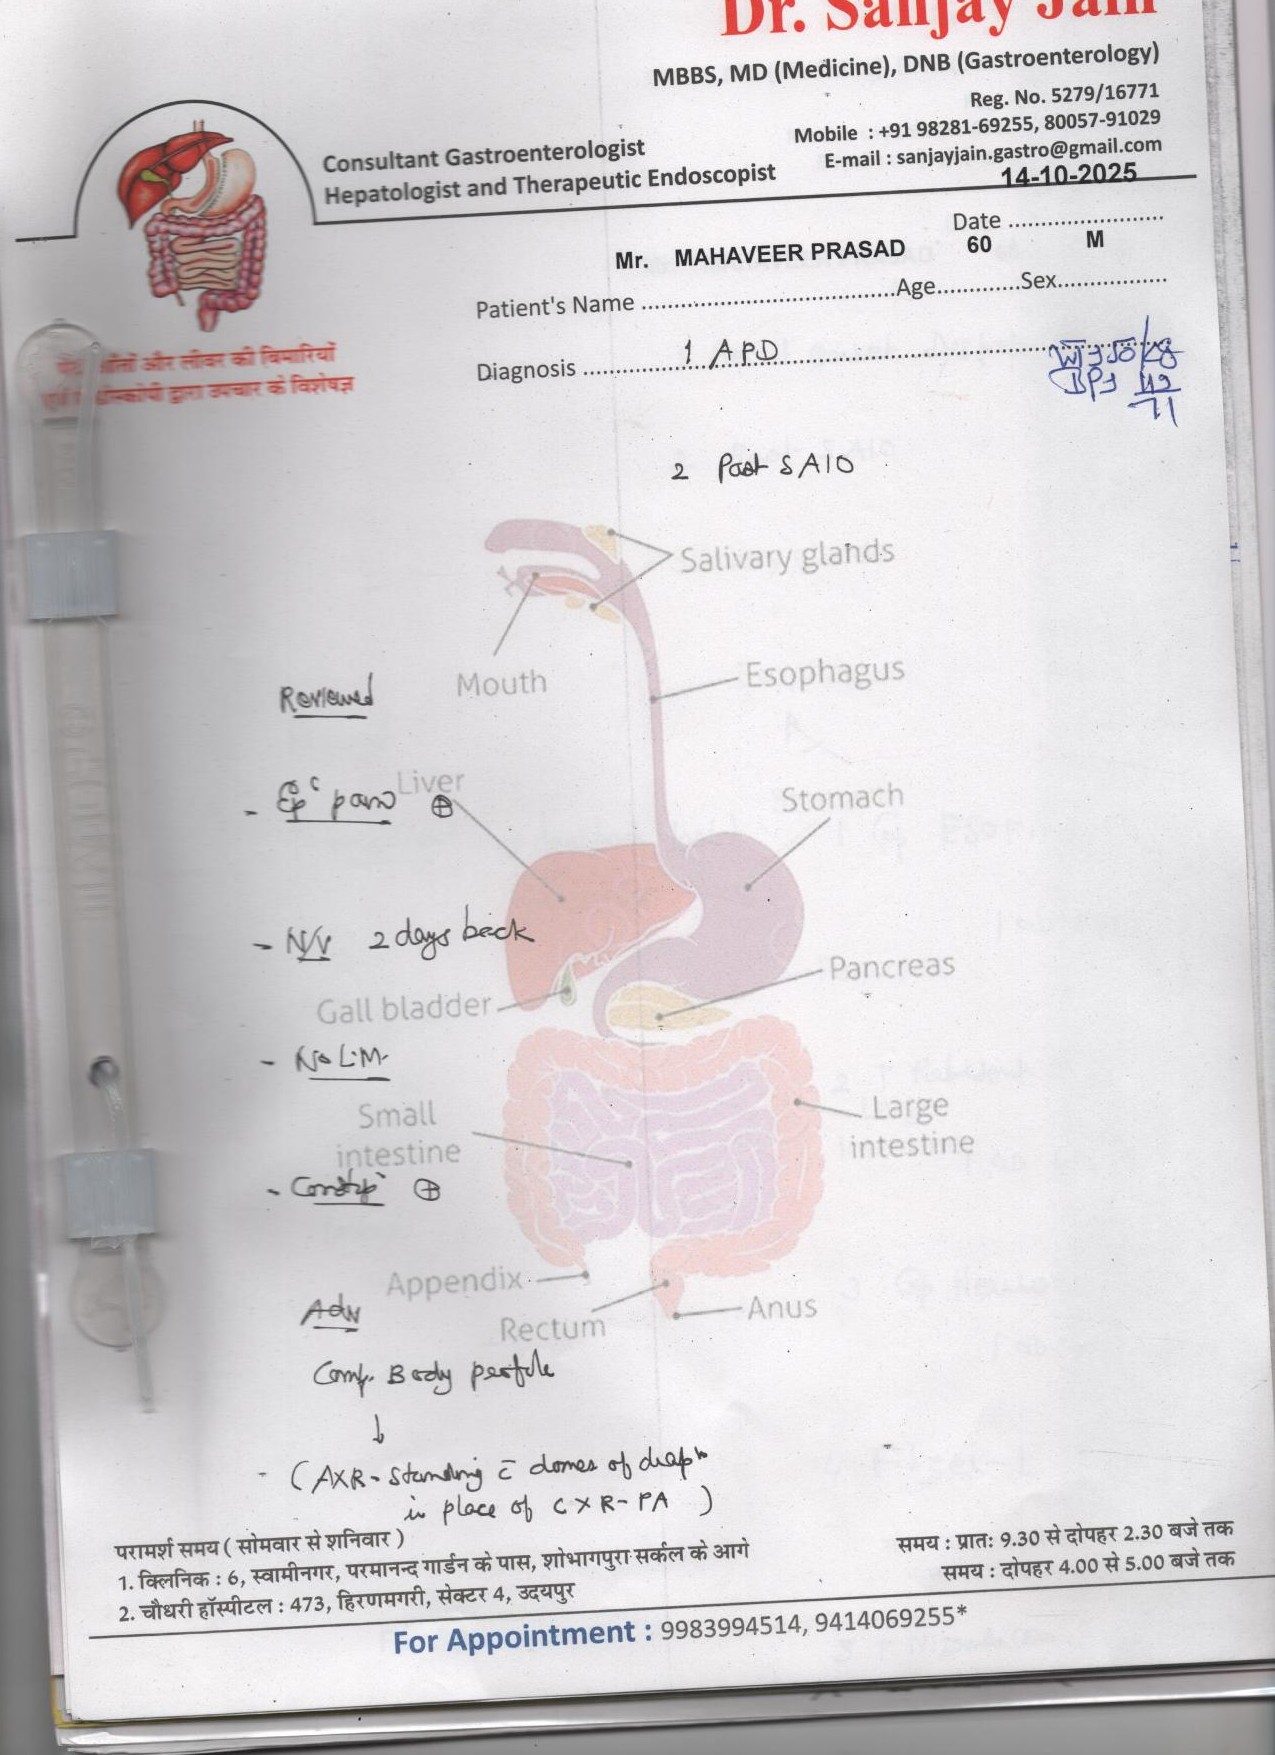 Dr. Sanjay Jain
MBBS, MD (Medicine), DNB (Gastroenterology)
Reg. No. 5279/16771
Mobile : +91 98281-69255, 80057-91029
E-mail : sanjayjain.gastro@gmail.com
Consultant Gastroenterologist
Hepatologist and Therapeutic Endoscopist
14-10-2025
Date ........................
Mr. MAHAVEER PRASAD 60 M
Patient's Name ........................Age.............Sex.................
आँतों और लीवर की बिमारियों
द्वारा उपचार के विशेषज्ञ
Diagnosis ........ 1 APD
2 Past SAIO
Salivary glands
Mouth
Esophagus
Reviewed
Liver
- Epc pain ⊕
Stomach
- N/V 2 days back
Pancreas
Gall bladder
- No L.M.
Small
intestine
Large
intestine
- Constip ⊕
Appendix
Adv
Rectum
Anus
Comp. Body profile
↓
- (AXR - standing c̄ domes of diaph
in place of CXR-PA )
परामर्श समय ( सोमवार से शनिवार )
1. क्लिनिक : 6, स्वामीनगर, परमानन्द गार्डन के पास, शोभागपुरा सर्कल के आगे
समय : प्रातः 9.30 से दोपहर 2.30 बजे तक
2. चौधरी हॉस्पीटल : 473, हिरणमगरी, सेक्टर 4, उदयपुर
समय : दोपहर 4.00 से 5.00 बजे तक
For Appointment : 9983994514, 9414069255*